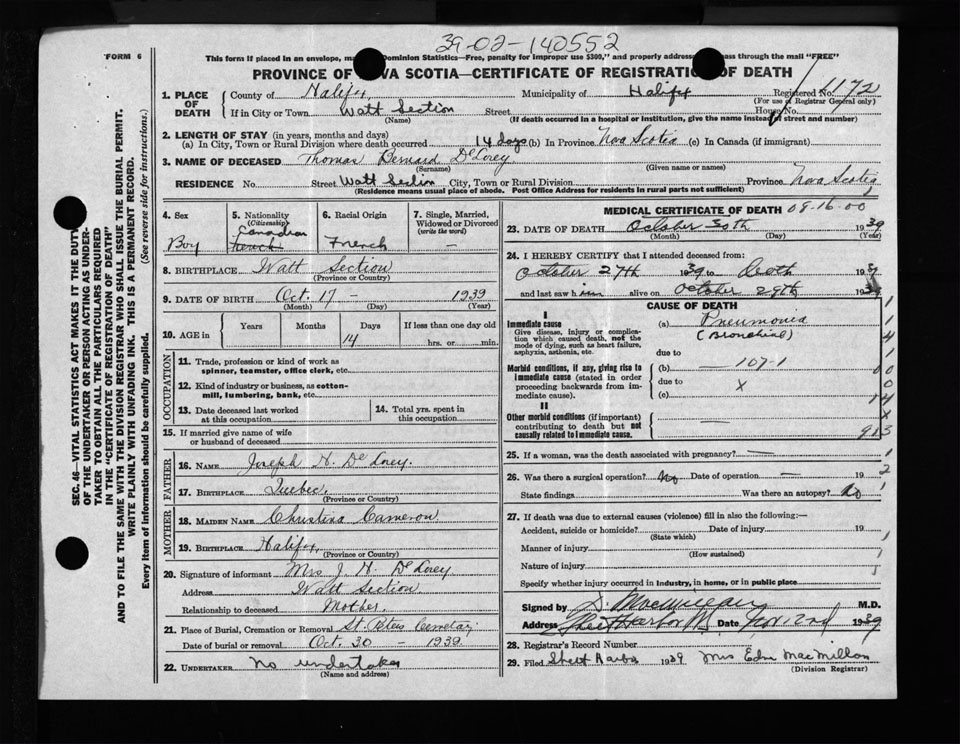 39-02-140552
FORM 6
This form if placed in an envelope, ma Dominion Statistics—Free, penalty for improper use $300," and properly addres ass through the mail "FREE"
PROVINCE OF VA SCOTIA—CERTIFICATE OF REGISTRATION OF DEATH
1. PLACE OF DEATH County of Halifax Municipality of Halifax Registered No. 1172
(For use of Registrar General only)
If in City or Town Watt Section Street House No.
(Name) (If death occurred in a hospital or institution, give the name instead of street and number)
2. LENGTH OF STAY (in years, months and days)
(a) In City, Town or Rural Division where death occurred 14 days (b) In Province Nova Scotia (c) In Canada (if immigrant)
3. NAME OF DECEASED Thomas Bernard DeCorey
(Surname) (Given name or names)
RESIDENCE No. Street Watt Section City, Town or Rural Division Province Nova Scotia
(Residence means usual place of abode. Post Office Address for residents in rural parts not sufficient)
4. Sex
Boy
5. Nationality (Citizenship)
Canadian
French
6. Racial Origin
French
7. Single, Married, Widowed or Divorced (write the word)
—
8. BIRTHPLACE Watt Section
(Province or Country)
9. DATE OF BIRTH Oct. 17 — 1939
(Month) (Day) (Year)
10. AGE in Years Months Days If less than one day old
14 hrs. or min.
OCCUPATION
11. Trade, profession or kind of work as spinner, teamster, office clerk, etc.
12. Kind of industry or business, as cotton-mill, lumbering, bank, etc.
13. Date deceased last worked at this occupation
14. Total yrs. spent in this occupation
15. If married give name of wife or husband of deceased
FATHER
16. NAME Joseph H. DeCorey.
17. BIRTHPLACE Quebec.
(Province or Country)
MOTHER
18. MAIDEN NAME Christina Cameron
19. BIRTHPLACE Halifax
(Province or Country)
20. Signature of informant Mrs J. H. DeCorey
Address Watt Section
Relationship to deceased Mother.
21. Place of Burial, Cremation or Removal St. Peters Cemetary
Date of burial or removal Oct. 30 — 1939
22. UNDERTAKER No undertaker
(Name and address)
MEDICAL CERTIFICATE OF DEATH 08-16-00
23. DATE OF DEATH October 30th 1939
(Month) (Day) (Year)
24. I HEREBY CERTIFY that I attended deceased from:
October 27th 1939 to Death 1939
and last saw him alive on October 29th 1939
CAUSE OF DEATH
I
Immediate cause
Give disease, injury or complication which caused death, not the mode of dying, such as heart failure, asphyxia, asthenia, etc.
(a) Pneumonia
(Bronchial)
due to
Morbid conditions, if any, giving rise to immediate cause (stated in order proceeding backwards from immediate cause).
(b) 107-1
due to x
(c)
II
Other morbid conditions (if important) contributing to death but not causally related to immediate cause.
25. If a woman, was the death associated with pregnancy? —
26. Was there a surgical operation? No Date of operation — 19
State findings Was there an autopsy? No
27. If death was due to external causes (violence) fill in also the following:—
Accident, suicide or homicide? Date of injury 19
(State which)
Manner of injury
(How sustained)
Nature of injury
Specify whether injury occurred in industry, in home, or in public place
Signed by M.D.
Address Sheet Harbor NS Date Nov 2nd 1939
28. Registrar's Record Number
29. Filed Sheet Harbor 1939 Mrs Edn MacMillan
(Division Registrar)
SEC. 46—VITAL STATISTICS ACT MAKES IT THE DUTY
OF THE UNDERTAKER OR PERSON ACTING AS UNDER-
TAKER TO OBTAIN ALL THE PARTICULARS REQUIRED
IN THE "CERTIFICATE OF REGISTRATION OF DEATH"
AND TO FILE THE SAME WITH THE DIVISION REGISTRAR WHO SHALL ISSUE THE BURIAL PERMIT.
WRITE PLAINLY WITH UNFADING INK. THIS IS A PERMANENT RECORD.
Every item of information should be carefully supplied. (See reverse side for instructions.)